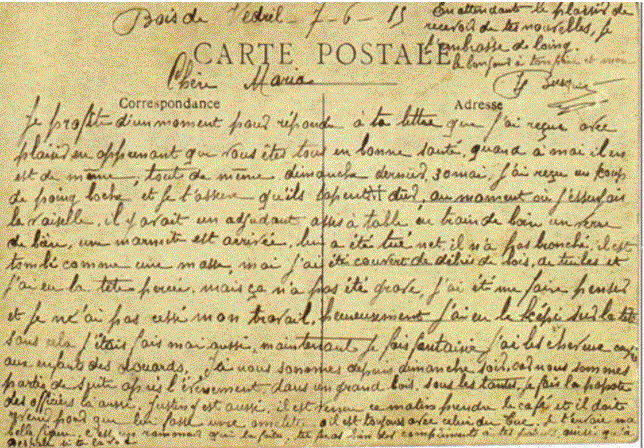 Bois de Vedril - 7-6-15
En attendant le plaisir de
recevoir de tes nouvelles, je
t'embrasse de loing.
le bonjour à ton père et
CARTE POSTALE
Chère Maria
Correspondance
Adresse
Je profite d'un moment pour répondre à ta lettre que j'ai reçue avec
plaisir en apprenant que vous êtes tous en bonne santé, quand à moi il en
est de même, tout de même dimanche dernier, 30 mai, j'ai reçu un coup
de poing boche et je t'assure qu'ils tapent dur, au moment où j'essuyais
la vaiselle, il y avait un adjudant assis à table en train de boire un verre
de bière, une marmite est arrivée, lui a été tué net, il n'a pas bronché, il est
tombé comme une masse, moi j'ai été couvert de débris de bois, de tuiles et
j'ai eu la tête percée, mais ça n'a pas été grave, j'ai été me faire penser
et je n'ai pas cessé mon travail, heureusement j'ai eu le képi sur la tête
sans cela j'étais fais moi aussi, maintenant je fais fantaisie j'ai les cheveux coupé
aux enfants des Nous sommes depuis dimanche soir, car nous sommes
partis de suite après l'évènement dans un grand bois, sous les tentes, je fais la popote
des officiers là aussi, Justin y est aussi, il est venu ce matin prendre le café et il doit
grand pour que lui fasse une omelette, il est toujours avec celui du